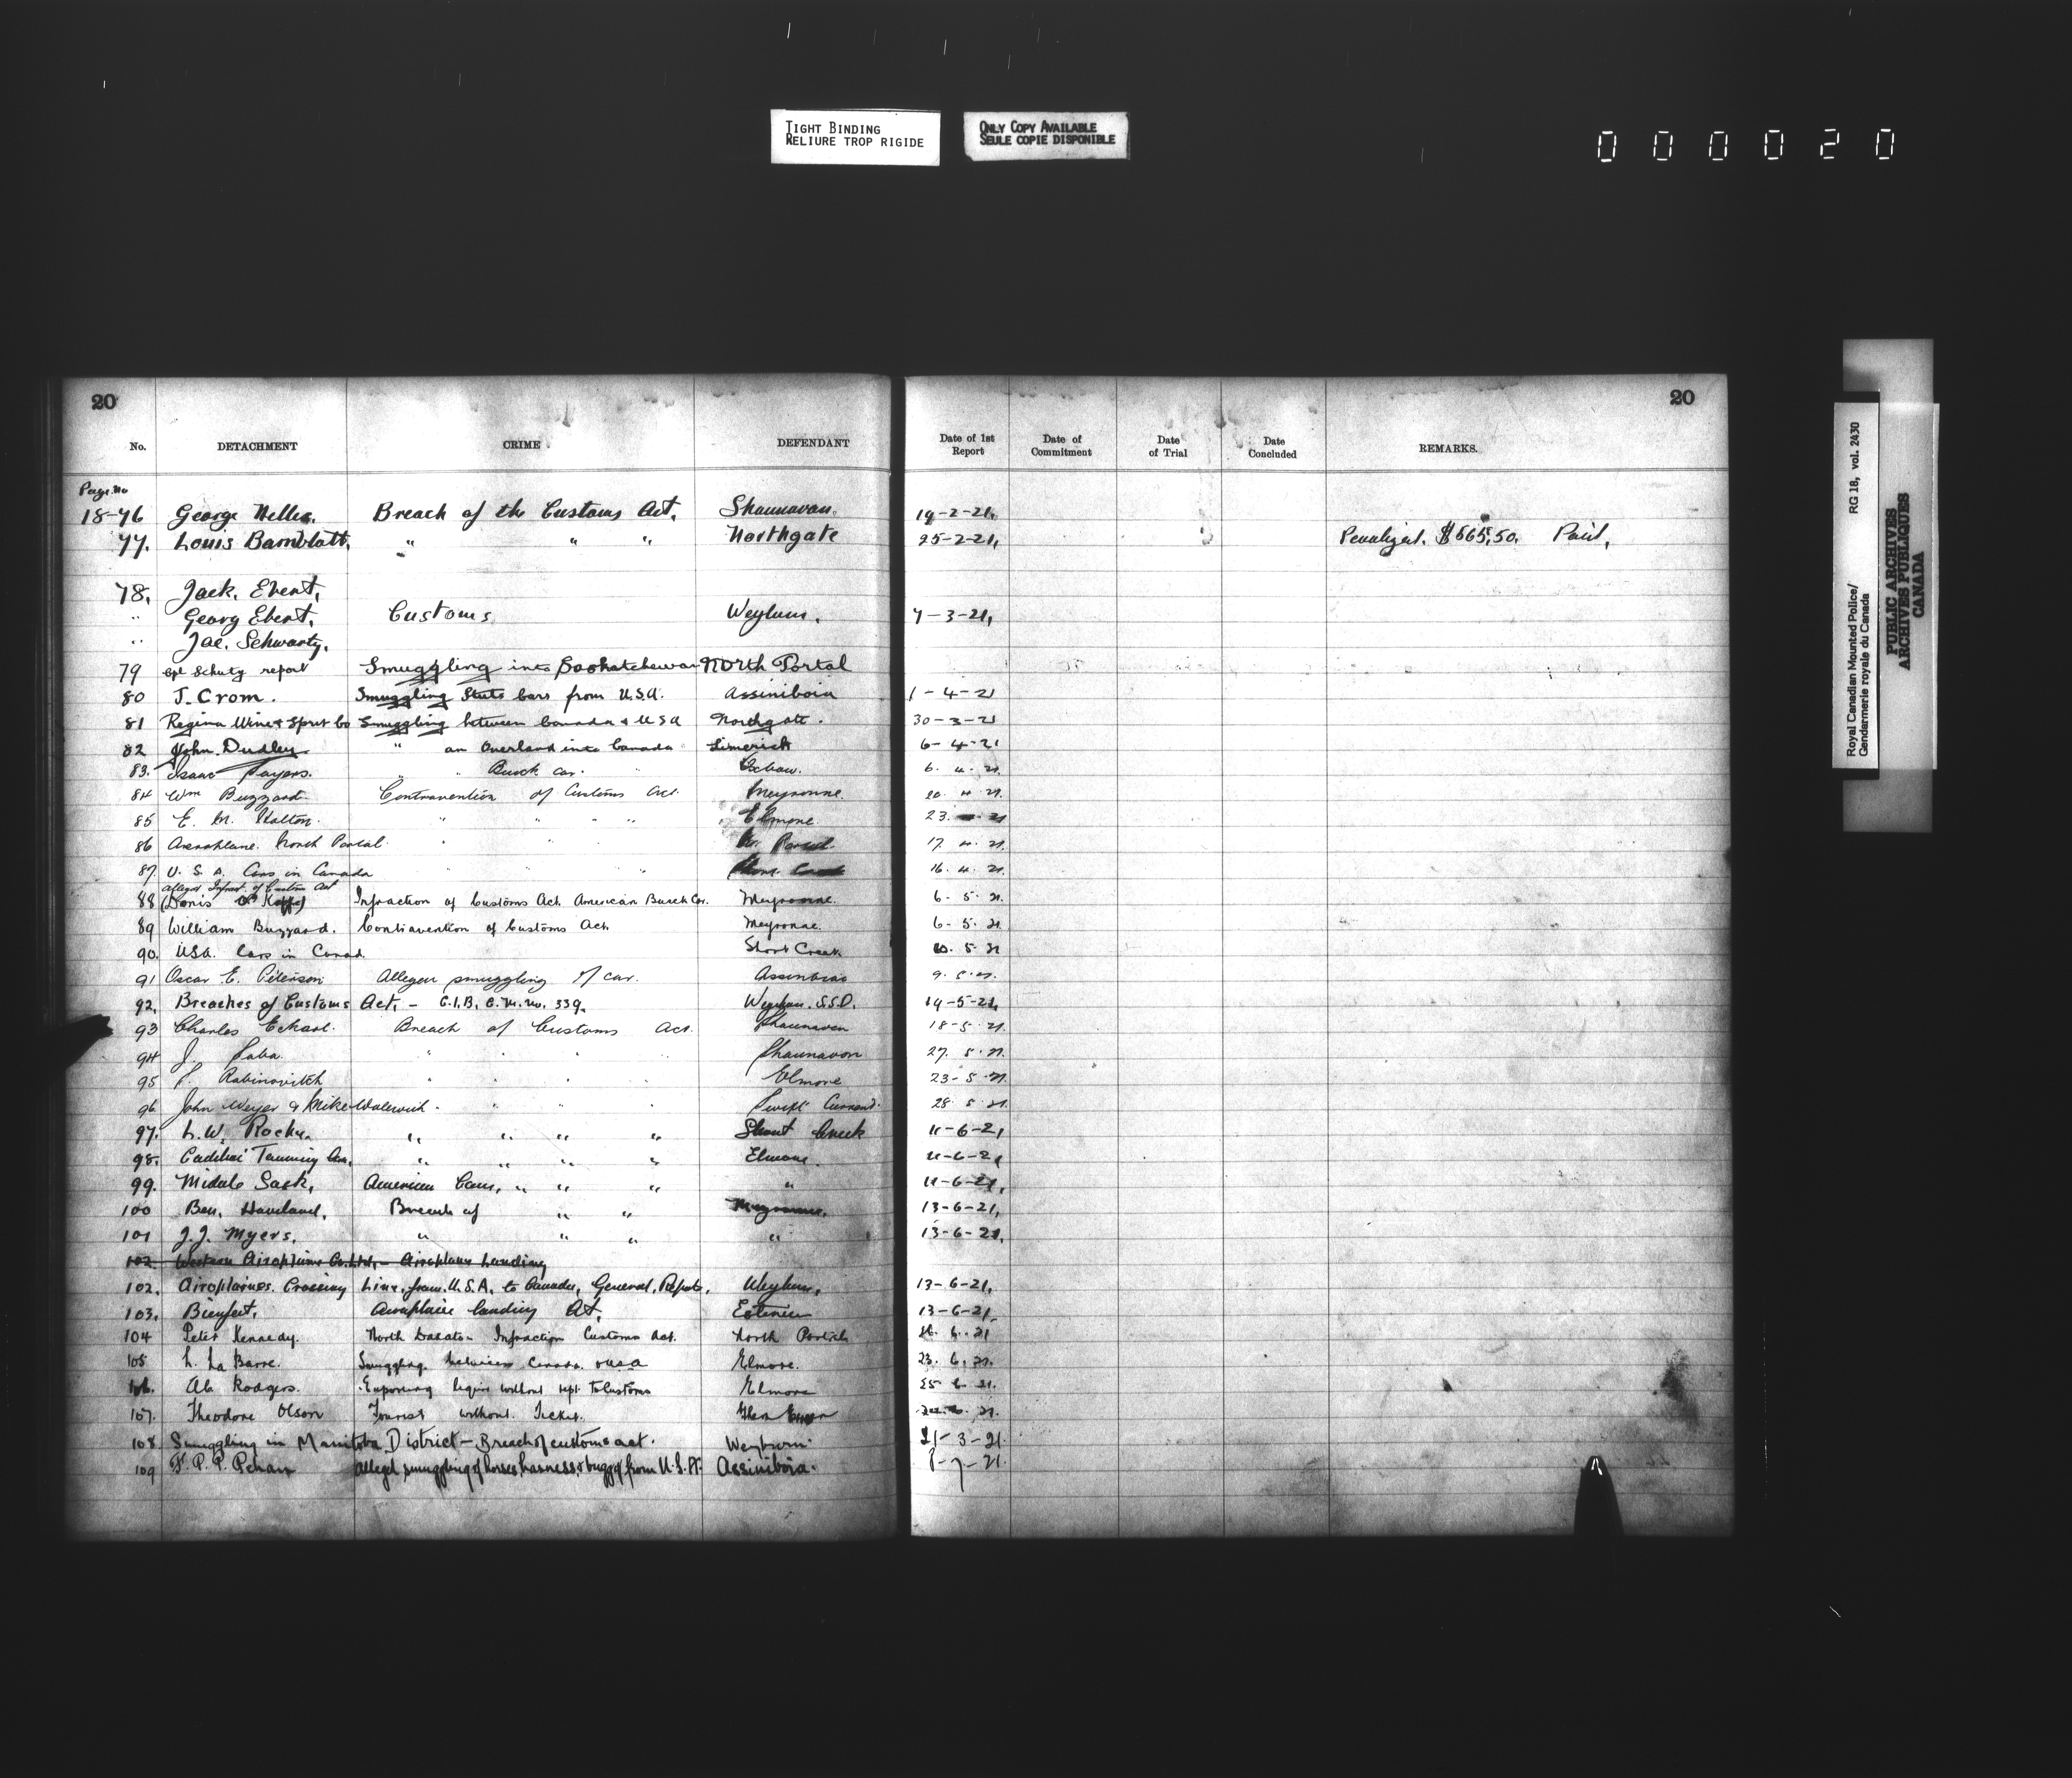 TIGHT BINDING
RELIURE TROP RIGIDE
ONLY COPY AVAILABLE
SEULE COPIE DISPONIBLE
000020
20 20
No. DETACHMENT CRIME DEFENDANT Date of 1st Report Date of Commitment Date of Trial Date Concluded REMARKS.
Page No
18-76 George Breach of the Customs Act, Shaunavon. 19-2-21,
77. Louis Bamblatt, " " " Northgate 25-2-21, Penalized. $565.50. Paid,
78. Jack. Ebert,
" Georg Ebert, Customs Weyburn, 7-3-21,
" Jac. Schwartz,
79 Cpl Schutz report Smuggling into Saskatchewan North Portal
80 J. Crom. Smuggling Stutz Cars from U.S.A. Assiniboia 1-4-21
81 Regina Wine & Spirit Co Smuggling between Canada & U S A Northgate. 30-3-21
82 John. Dudley " an Overland into Canada Limerick 6-4-21
83. Isaac Sayers. " " Buick car. " 6. 4. 21.
84 Wm Buzzard Contravention of Customs Act. Meyronne. 20. 4. 21.
85 E. M. " " " " Elmore 23. 21
86 Aeroplane. North Portal. " " " No. Portal 17. 4. 21.
87. U. S. A. Cars in Canada " " " 16. 4. 21.
alleged Infract. of Customs Act
88 Infraction of Customs Act. American Buick Car. Meyronne. 6. 5. 21.
89 William Buzzard. Contravention of Customs Act. Meyronne. 6. 5. 21
90. USA. Cars in Canad. Short Creek 10. 5. 21
91 Oscar E. Peterson Alleged smuggling of car. Assiniboia 9. 5. 21.
92. Breaches of Customs Act, - C.I.B. C.M. No. 339. Weyburn. S.S.D. 19-5-21,
93 Charles Eckart. Breach of Customs Act. Shaunavon 18-5-21.
94 J. Saba. " " " " Shaunavon 27. 5. 21.
95 Rabinovitch " " " " Elmore 23-5-21.
96. John Weyer & Mike Walewich. " " " Swift Current. 28. 5. 21.
97. L. W. " " " " Creek 11-6-21
98. Cadillac Touring Car, " " " " Elmore. 11-6-21
99. Midale Sask, American Cars, " " " " 11-6-21,
100 Ben. Haveland, Breach of " " Meyronne. 13-6-21,
101 J. J. Myers, " " " " 13-6-21,
102. Western Airoplane Co. Ltd, - Airoplane Landing
102. Airoplaines. Crossing Line, from. U.S.A. to Canada, General, Report, Weyburn, 13-6-21,
103. Bienfait, Aeroplane landing At, Estevan 13-6-21,
104 Peter Kennedy. North Dakota - Infraction Customs Act. North Portal 6. 21
105 L. La Barre. Smuggling. between Canada. & USA Elmore. 23. 6. 21.
106. Ab. Rodgers. Exporting liquor without rept. to Customs Elmore 25 6. 21.
107. Theodore Olson Tourist without. Ticket. Glen 6. 21.
108 Smuggling in Manitoba District - Breach of customs act. Weyburn 21-3-21.
109 F. P. P. alleged smuggling of horses, harness, & buggy from U.S.A. Assiniboia. 8-7-21.
Royal Canadian Mounted Police/ RG 18, vol. 2430
Gendarmerie royale du Canada
PUBLIC ARCHIVES
ARCHIVES PUBLIQUES
CANADA